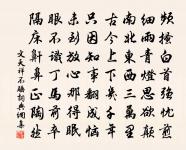 頻搔白首強憂煎
細雨青燈思欲顛
南北東西三萬里
古今上下幾千年
只因知事翻成惱
未到放心那得眠
眼不識丁馬前卒
隔床鼾鼻正陶然
文天祥不睡詞典網集